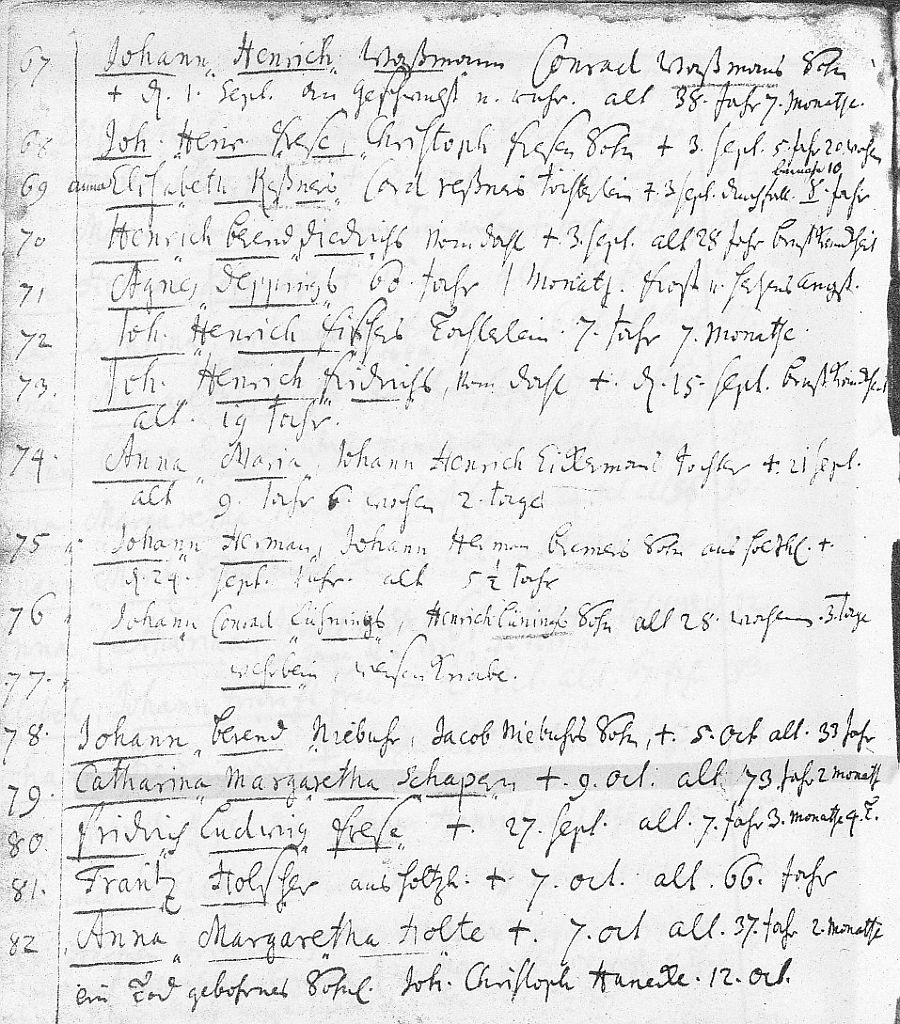 67 Johann Henrich Waßmann Conrad Waßmans Sohn
+ d. 1. Sept. an Geschwulst u. alt 38. Jahr 7. Monathe.
68 Joh. Henr Frese, Christoph Fresen Sohn + 3. Sept. 5 Jahr 20 wochen
beinahe 10
69 Anna Elisabeth Keßners Cord Keßners Töchterlein + 3 Sept. durchfall. Jahr
70 Henrich berend Diedrichs vom Dahl + 3. Sept. alt 28 Jahr brustkrankheit
71 Agnes Deppings 60. Jahr 1 Monath. Frost u. Hertzens angst.
72 Joh. Henrich Fischers Töchterlein. 7. Jahr 7. Monathe
73. Joh. Henrich Fridrichs, vom Dahl +. d. 15. Sept. brustkrankheit
alt. 19 Jahr.
74. Anna Maria Johann Henrich Eickermans Tochter +. 21 Sept.
alt 9. Jahr 6. wochen 2. Tage
75 Johann Herman, Johann Herman bremers Sohn aus Holtzh. +
d. 24. Sept. Ruhr. alt 5 ½ Jahr
76 Johann Conrad Lühnings, Henrich Lünings Sohn alt 28. wochen. 3. Tage
77. wehrbein, weisen Knabe.
78. Johann berend Niebuhr, Jacob Niebuhrs Sohn, +. 5. Oct alt. 33 Jahr
79. Catharina Margaretha Schapen +. 9. Oct. alt 73 Jahr 2 monath
80. Fridrich Ludwig Frese +. 27. Sept. alt. 7. Jahr 3. monathe 9. T.
81. Frantz Holscher aus Holtzh. +. 7. Oct. alt. 66. Jahr
82 Anna Margaretha Holte +. 7. Oct alt. 37. Jahr 2. Monathe
ein Tod gebohrnes Sohnl. Joh. Christoph Hanecke. 12. Oct.